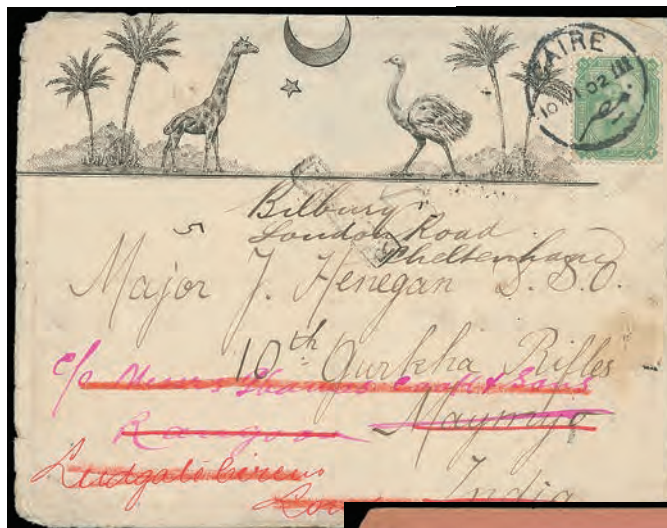 CAIRE
10 I 02 III
Bilbury
London Road
Cheltenham
Major J. Henegan D.S.O.
10th Gurkha Rifles
c/o Messrs Thomas Cook & Sons
Maymyo
Rangoon
Ludgate Circus
India